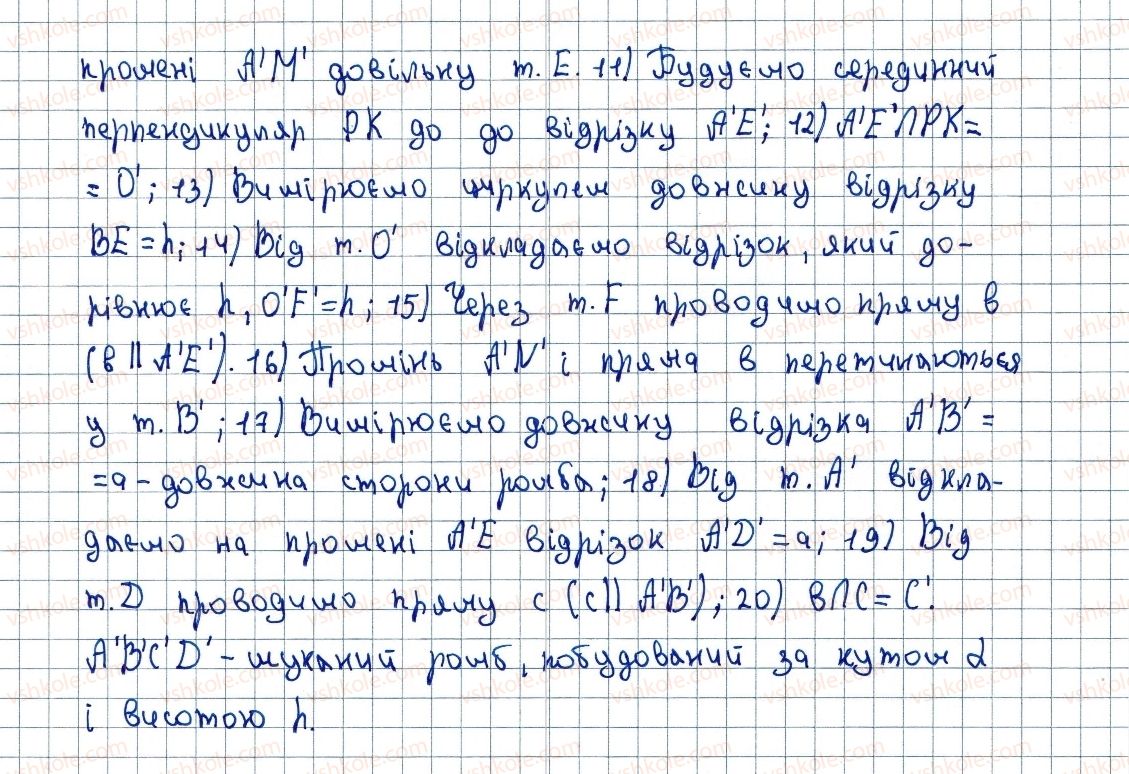 промені A'M' довільну т. E. 11) Будуємо серединний
перпендикуляр PK до до відрізку A'E'; 12) A'E'∩PK=
= O'; 13) Вимірюємо циркулем довжину відрізку
BE = h; 14) Від т. O' відкладаємо відрізок, який до-
рівнює h, O'F'=h; 15) Через т. F проводимо пряму в
(в || A'E'). 16) Промінь A'N' і пряма в перетинаються
у т. B'; 17) Вимірюємо довжину відрізка A'B' =
=a - довжина сторони ромба; 18) Від т. A' відкла-
даємо на промені A'E відрізок A'D' = a; 19) Від
т. D проводимо пряму c (c || A'B'); 20) в∩C = C'.
A'B'C'D' - шуканий ромб, побудований за кутом α
і висотою h.